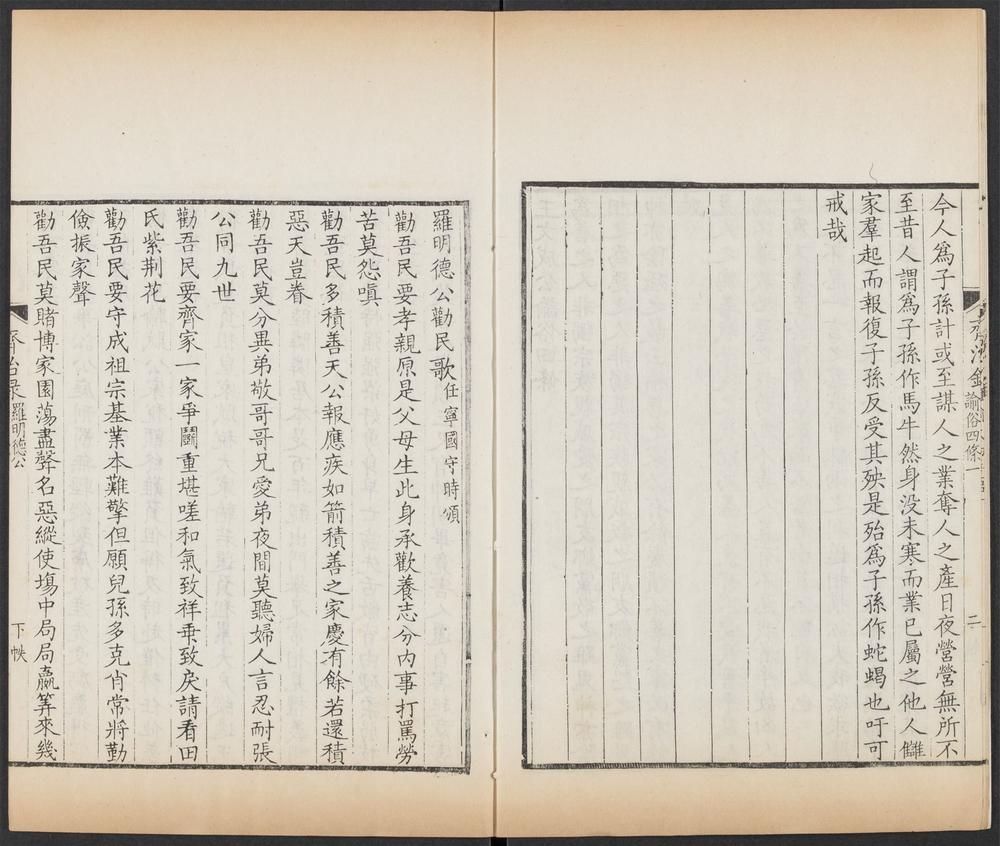 今人爲子孫計或至謀人之業奪人之產日夜營營無所不
至昔人謂爲子孫作馬牛然身没未寒而業已屬之他人讎
家羣起而報復子孫反受其殃是殆爲子孫作蛇蝎也吁可
戒哉
諭俗四條一
二
羅明德公勸民歌任寧國守時頒
勸吾民要孝親原是父母生此身承歡養志分內事打罵勞
苦莫怨嗔
勸吾民多積善天公報應疾如箭積善之家慶有餘若還積
惡天豈眷
勸吾民莫分異弟敬哥哥兄愛弟夜間莫聽婦人言忍耐張
公同九世
勸吾民要齊家一家爭鬭重堪嗟和氣致祥乖致戾請看田
氏紫荆花
勸吾民要守成祖宗基業本難擎但願兒孫多克肖常將勤
儉振家聲
勸吾民莫賭博家園蕩盡聲名惡縱使塲中局局贏算來幾
羅明德公
下帙